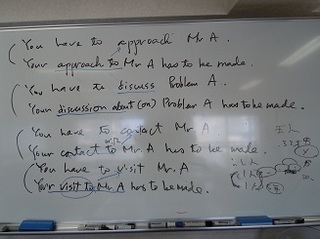 You have to approach Mr A.
Your approach to Mr A has to be made.
You have to discuss Problem A.
Your discussion about (on) Problem A has to be made.
You have to contact Mr. A.
Your contact to with Mr. A has to be made.
You have to visit Mr. A
Your visit to Mr. A has to be made.